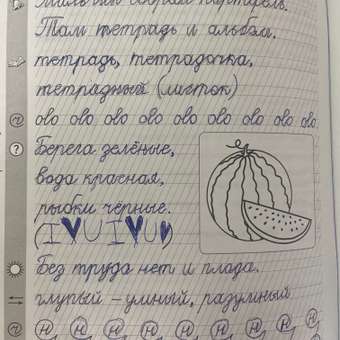 Мальчик собрал картофель.
Там тетрадь и альбом.
тетрадь, тетрадочка,
тетрадный (листок)
ово ово ово ово ово ово ово ово ово
Берега зелёные,
вода красная,
рыбки чёрные.
(I♥U I♥U♥)
Без труда нет и плода.
глупый – умный, разумный
н н н н н н н н н